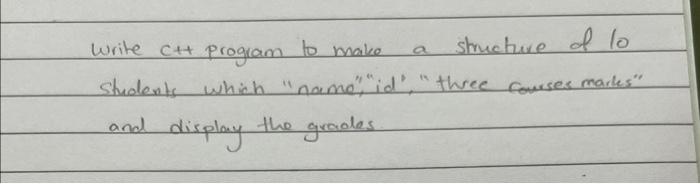 Write C++ program to make a structure of 10
Students which "name", "id", "three courses marks"
and display the grades.